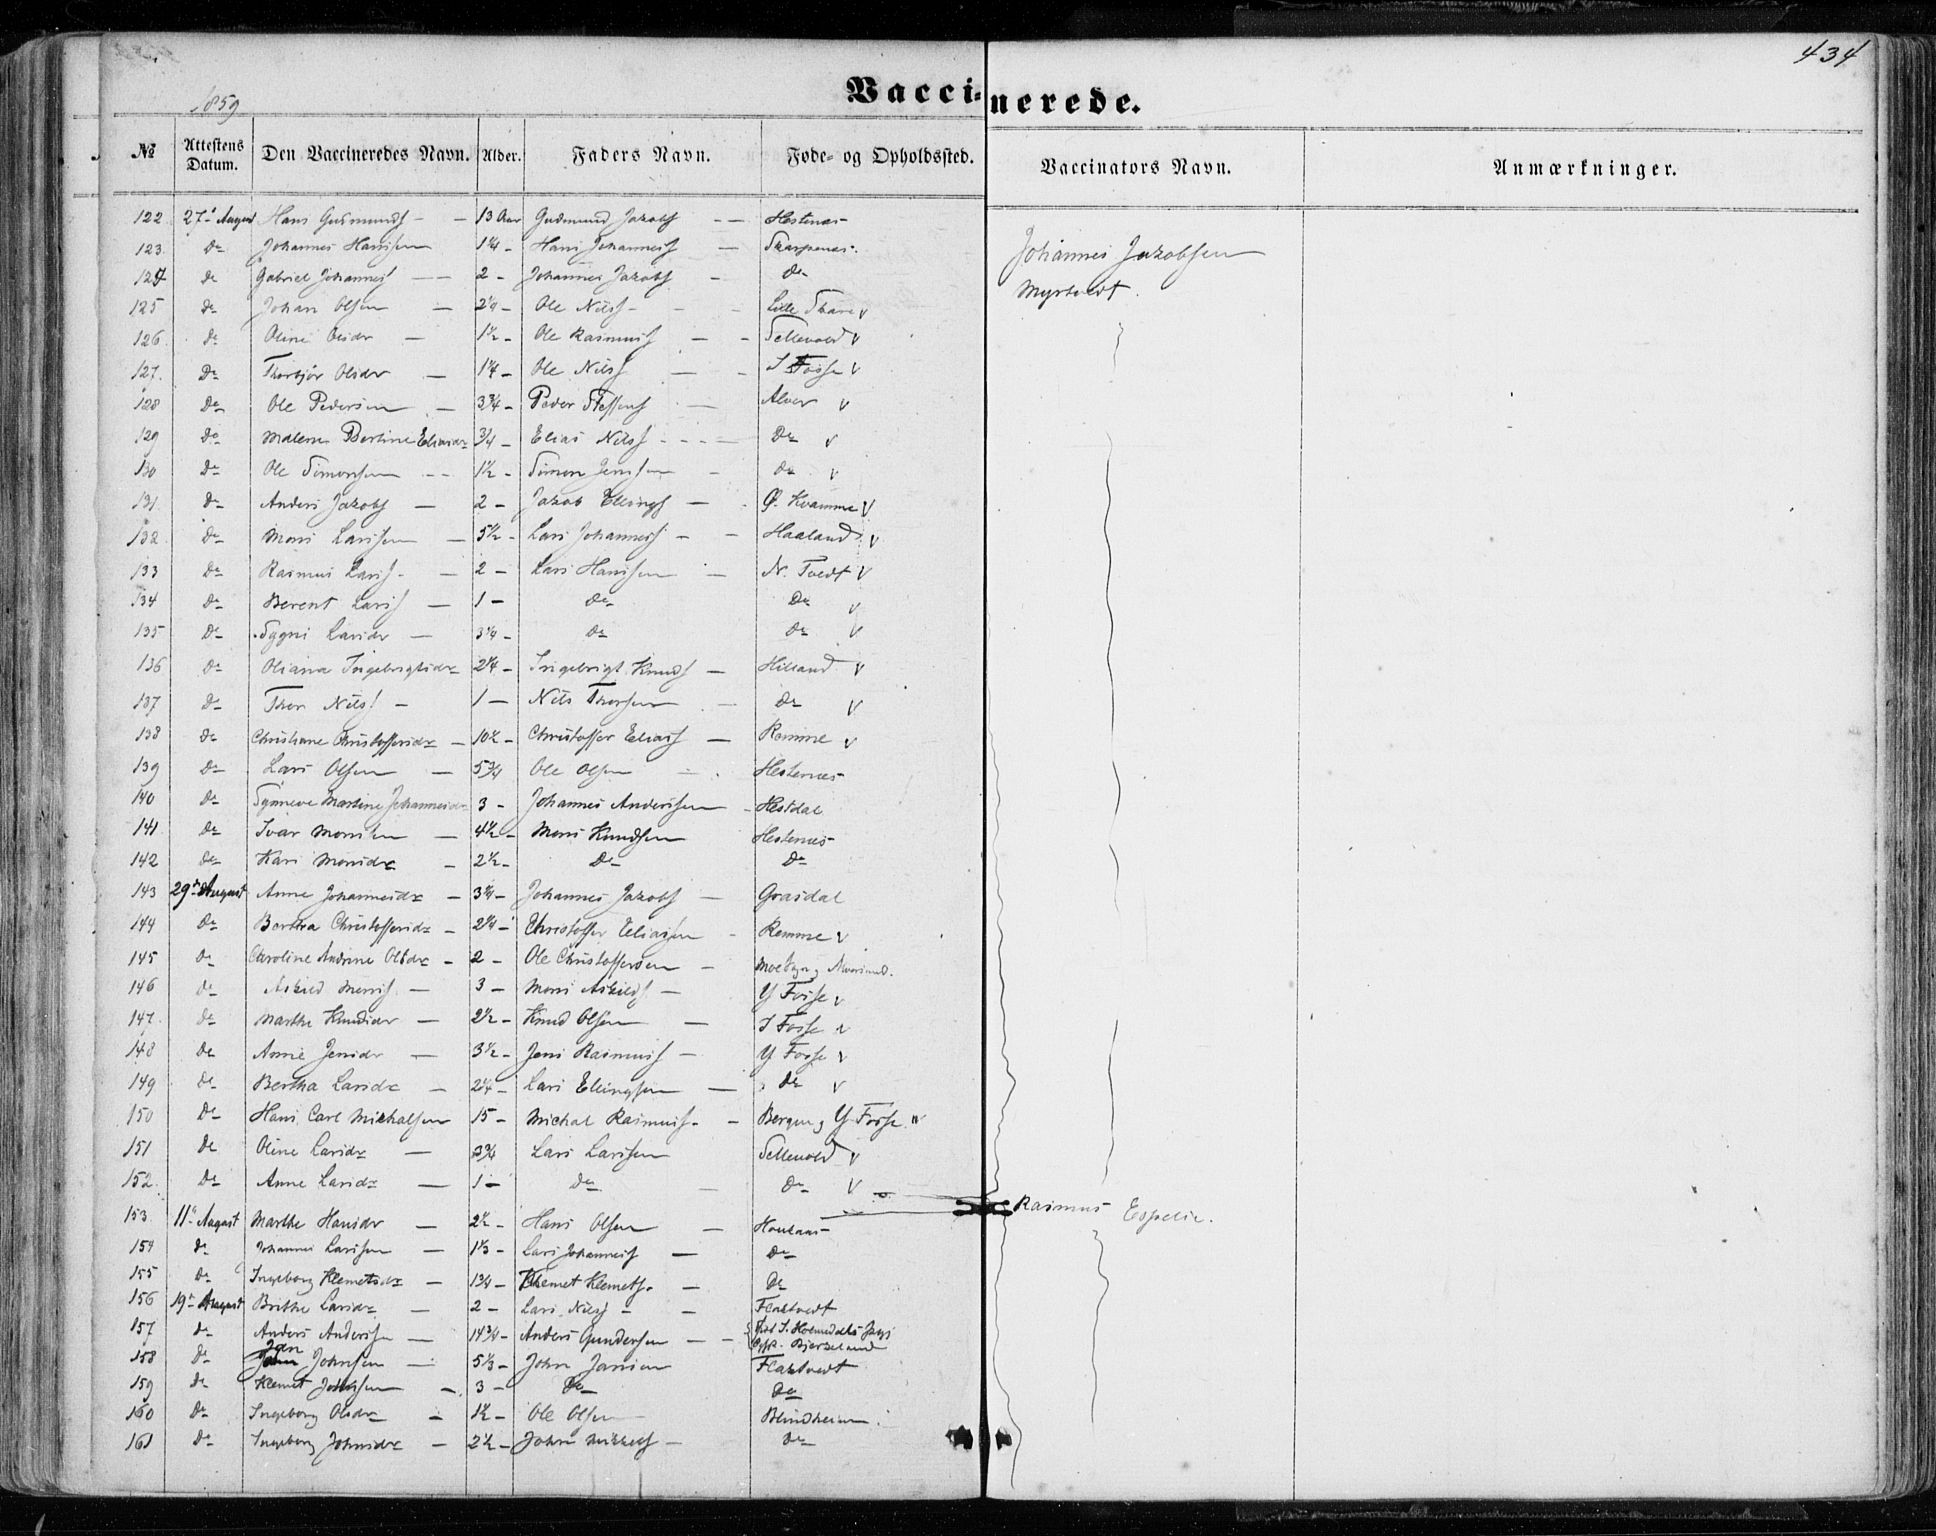 434
1859
Vaccinerede.
№ Attestens Datum. Den Vaccineredes Navn. Alder. Faders Navn. Føde- og Opholdssted. Vaccinators Navn. Anmærkninger.
122 27de August Hans Gudmunds - 13 Aar Gudmund Jakobs - Hestenes
123. Do Johannes Hanssen 1 1/4 - Hans Johannes - Skarpenes. Johannes Jakobsen
124 Do Gabriel Johannes - 2 - Johannes Jakobs - Do Myrtvedt.
125 Do Johan Olsen - 2 1/4 - Ole Nils - Lille Skare v
126 Do Oline Olsdr - 1 1/2 - Ole Rasmus - Sellevold v
127. Do Thorbjør Olsdr - 1 1/4 - Ole Nils - I Fosse v
128 Do Ole Pedersen - 3 3/4 - Peder Steffens - Alver v
129 Do Malene Bertine Eliasdr 3/4 - Elias Nils - Do v
130 Do Ole Simonsen - 1 1/2 - Simon Jenssen - Do v
131. Do Anders Jakobs - 2 - Jakob Ellings - Ø. Kvamme v
132 Do Mons Larssen - 5 1/2 - Lars Johannes - Haaland v
133 Do Rasmus Lars - 2 - Lars Hanssen - N. Tvedt v
134 Do Berent Lars - 1 - Do Do v
135 Do Sygni Larsdr - 3 1/4 - Do Do v
136 Do Oliana Ingebrigtsdr 2 1/4 - Ingebrigt Knuds - Hilland v
137 Do Thor Nils - 1 - Nils Thorsen - Do v
138 Do Christiane Christoffersdr - 10 1/2 - Christoffer Elias - Remme v
139 Do Lars Olsen - 5 3/4 Ole Olsen - Hestenes
140 Do Synneve Martine Johannesdr 3 - Johannes Anderssen - Hestdal
141 Do Ivar Monssen - 4 1/2 - Mons Knudsen Hestenes
142 Do Kari Monsdr - 2 1/2 - Do Do
143 29de August Anne Johannesdr - 3 1/4 - Johannes Jakobs - Grasdal
144 Do Bertha Christoffersdr - 2 1/4 - Christoffer Eliassen - Remme v
145 Do Caroline Andrine Olsdr - 2 - Ole Christoffersen - Alversund.
146 Do Askild Mons - 3 - Mons Askilds - Y Fosse v
147. Do Marthe Knudsdr - 2 1/2 - Knud Olsen - I Fosse v
148 Do Anne Jensdr - 3 1/2 - Jens Rasmus - Y Fosse v
149 Do Bertha Larsdr - 2 1/4 - Lars Ellingsen - Do v
150 Do Hans Carl Michalsen 15 - Michal Rasmus - Bergen, Y Fosse v
151 Do Oline Larsdr - 3 3/4 Lars Larssen Sellevold v
152. Do Anne Larsdr - 1 - Do - Do v
153. 11te August Marthe Hansdr - 2 1/2 - Hans Olsen - Houlaas Rasmus Espelie.
154 Do Johannes Larssen - 1 1/3 - Lars Johannes - Do
155 Do Ingeborg Klemetsdr - 1 3/4 - Klemet Klemets - Do
156 19de August Brithe Larsdr - 2 - Lars Nils - Flaktvedt
157 Do Anders Anderssen - 14 3/4 - Anders Gundersen - Fød S. Holmedahls Prgj
Opph. Bjørkelund
158 Do Jan Johnsen - 5 1/3 - John Jansen Flaktvedt
159 Do Klemet Johnsen - 3 - Do Do
160 Do Ingeborg Olsdr - 1 1/2 - Ole Olsen Blindheim
161 Do Ingeborg Johnsdr - 2 1/2 - John Mikkels - Do